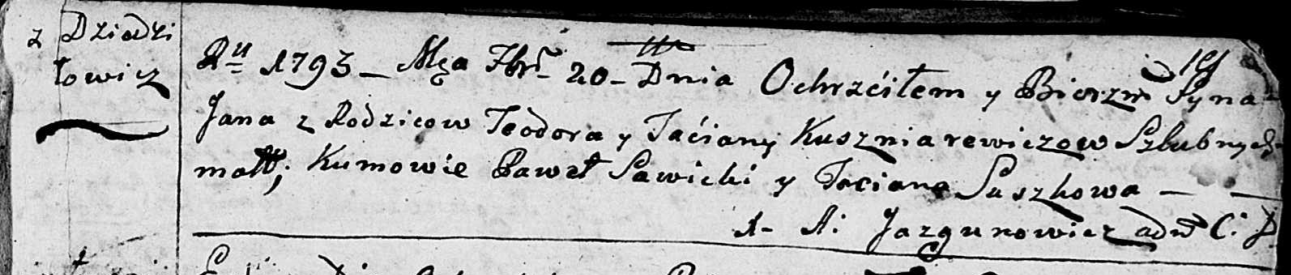 z Dziadzi
łowicz
Ru 1793 – Msca 7br 20 – Dnia Ochrzciłem y Bierzm Syna
Jana z Rodzicow Teodora y Taciany Kuszniarewiczow Szlubnych
małt; Kumowie Paweł Sawicki y Taciana Suszkowa –
X. A: Jazgunowicz adm C: D